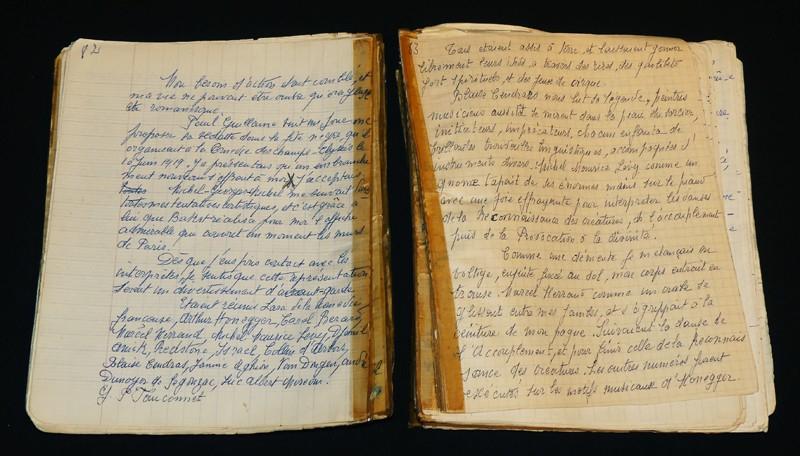 82
Mon besoin d'action était comblé, et
ma vie ne pouvait être autre qu'orageuse
et romanesque.
Paul Guillaume vint un jour me
proposer la vedette dans la fête nègre qu'il
organisait à la Comédie des champs-Elysées le
10 Juin 1919. J'y présentais un
nouveau s'offrait à moi X J'acceptais
Michel-Georges-Michel me suivait dans
toutes mes tentatives artistiques, et c'est grâce à
lui que Barbet réalisa pour moi l'affiche
admirable qui couvrit un moment les murs
de Paris.
Dès que j'eus pris contact avec les
interprètes, je sentis que cette représentation
serait un divertissement d'avant-garde.
Etaient réunis Lara de la Comédie
française, Arthur Honegger, Carol Bérard
Marcel Herrand, Michel Maurice Levy,
Redstone, Israel,
Blaise Cendras, Jeanne Van Dongen, André
Dunoyer de Segonzac, Luc Albert Moreau.
83
Tous étaient assis à terre, et lachement
librement leurs idées à travers des rires, des quolibets
fort spirituels, et des jeux de cirque.
Blaise Cendrars nous lut sa légende, peintres
musiciens aussitôt le mirent dans la peau du sorcier,
initiateurs, improvisateurs, chacun
trouvailles linguistiques, accompagnées d'
instruments divers. Michel Maurice Lévy comme un
gnome tapait de ses énormes mains sur le piano
avec une joie effrayante pour interpréter les danses
de la Reconnaissance des créatures, de l'accouplement
puis de la Provocation à la divinité.
Comme une démente je m'élançais en
voltige, ensuite face au sol, mon corps entrait en
transe. Marcel Herrand comme un crabe
glissait entre mes jambes, et s'agrippait à la
ceinture de mon pagne. Suivaient la danse de
l'Accouplement, et pour finir celle de la Reconnais
sance des créatures. Les autres numéros furent
exécutés sur les motifs musicaux d'Honegger.